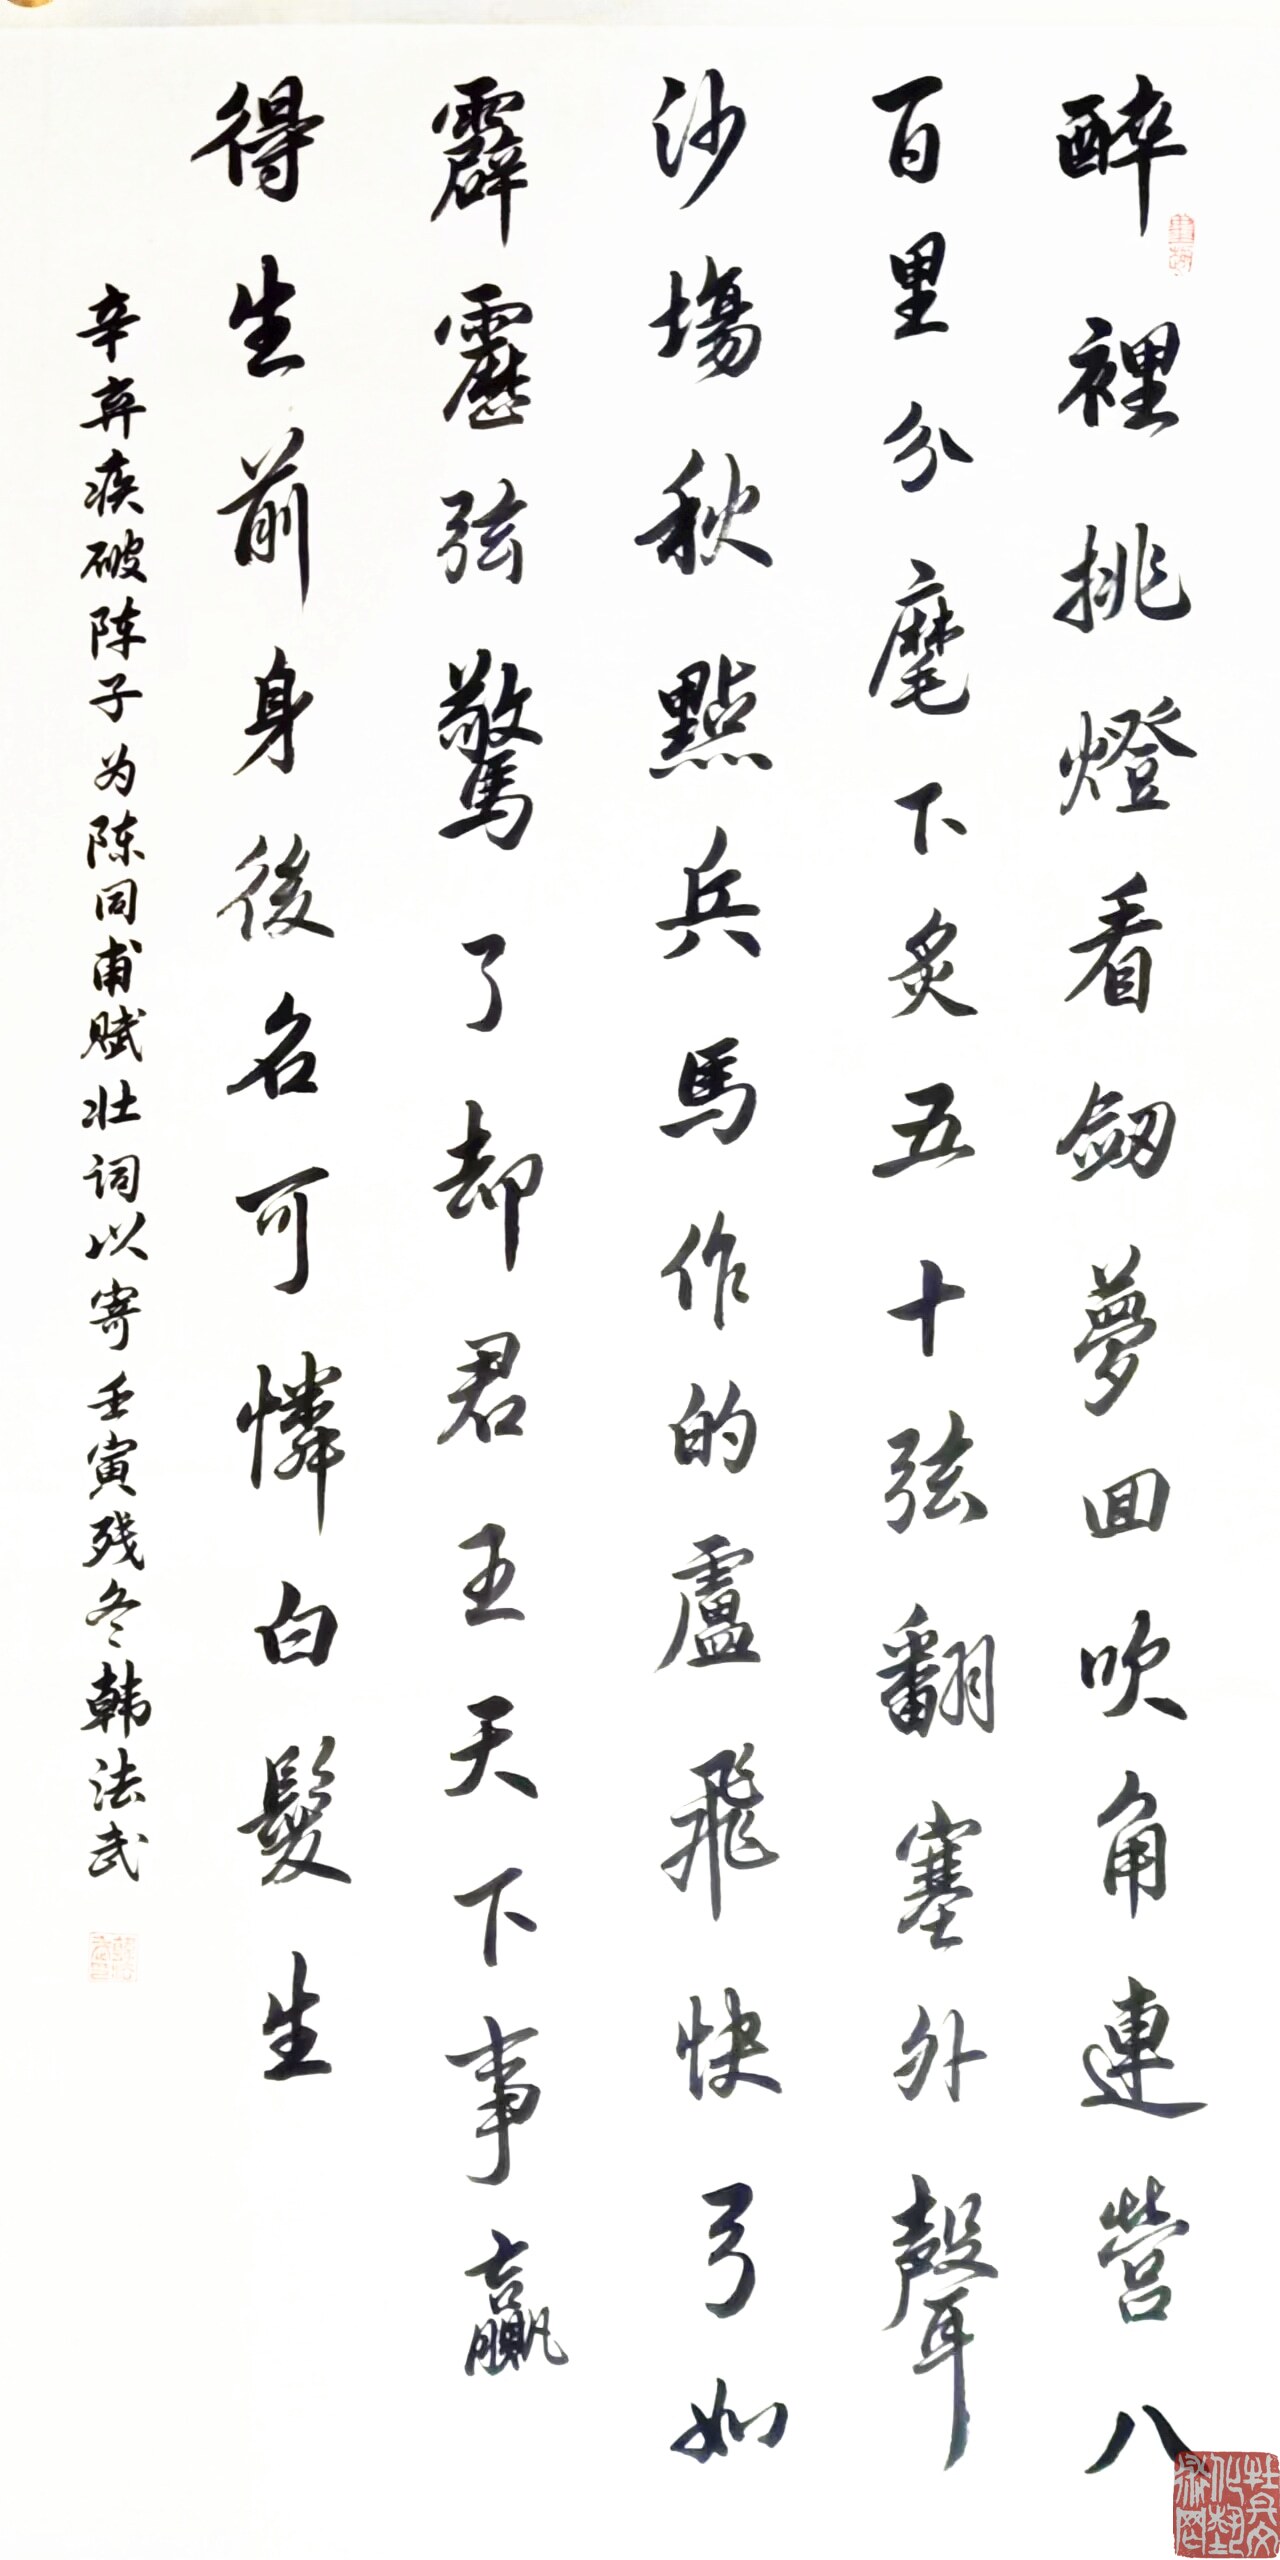 醉裡挑燈看劒夢回吹角連營八
百里分麾下炙五十弦翻塞外聲
沙場秋點兵馬作的盧飛快弓如
霹靂弦驚了却君王天下事贏
得生前身後名可憐白髮生
辛弃疾破阵子为陈同甫赋壮词以寄壬寅残冬韩法武